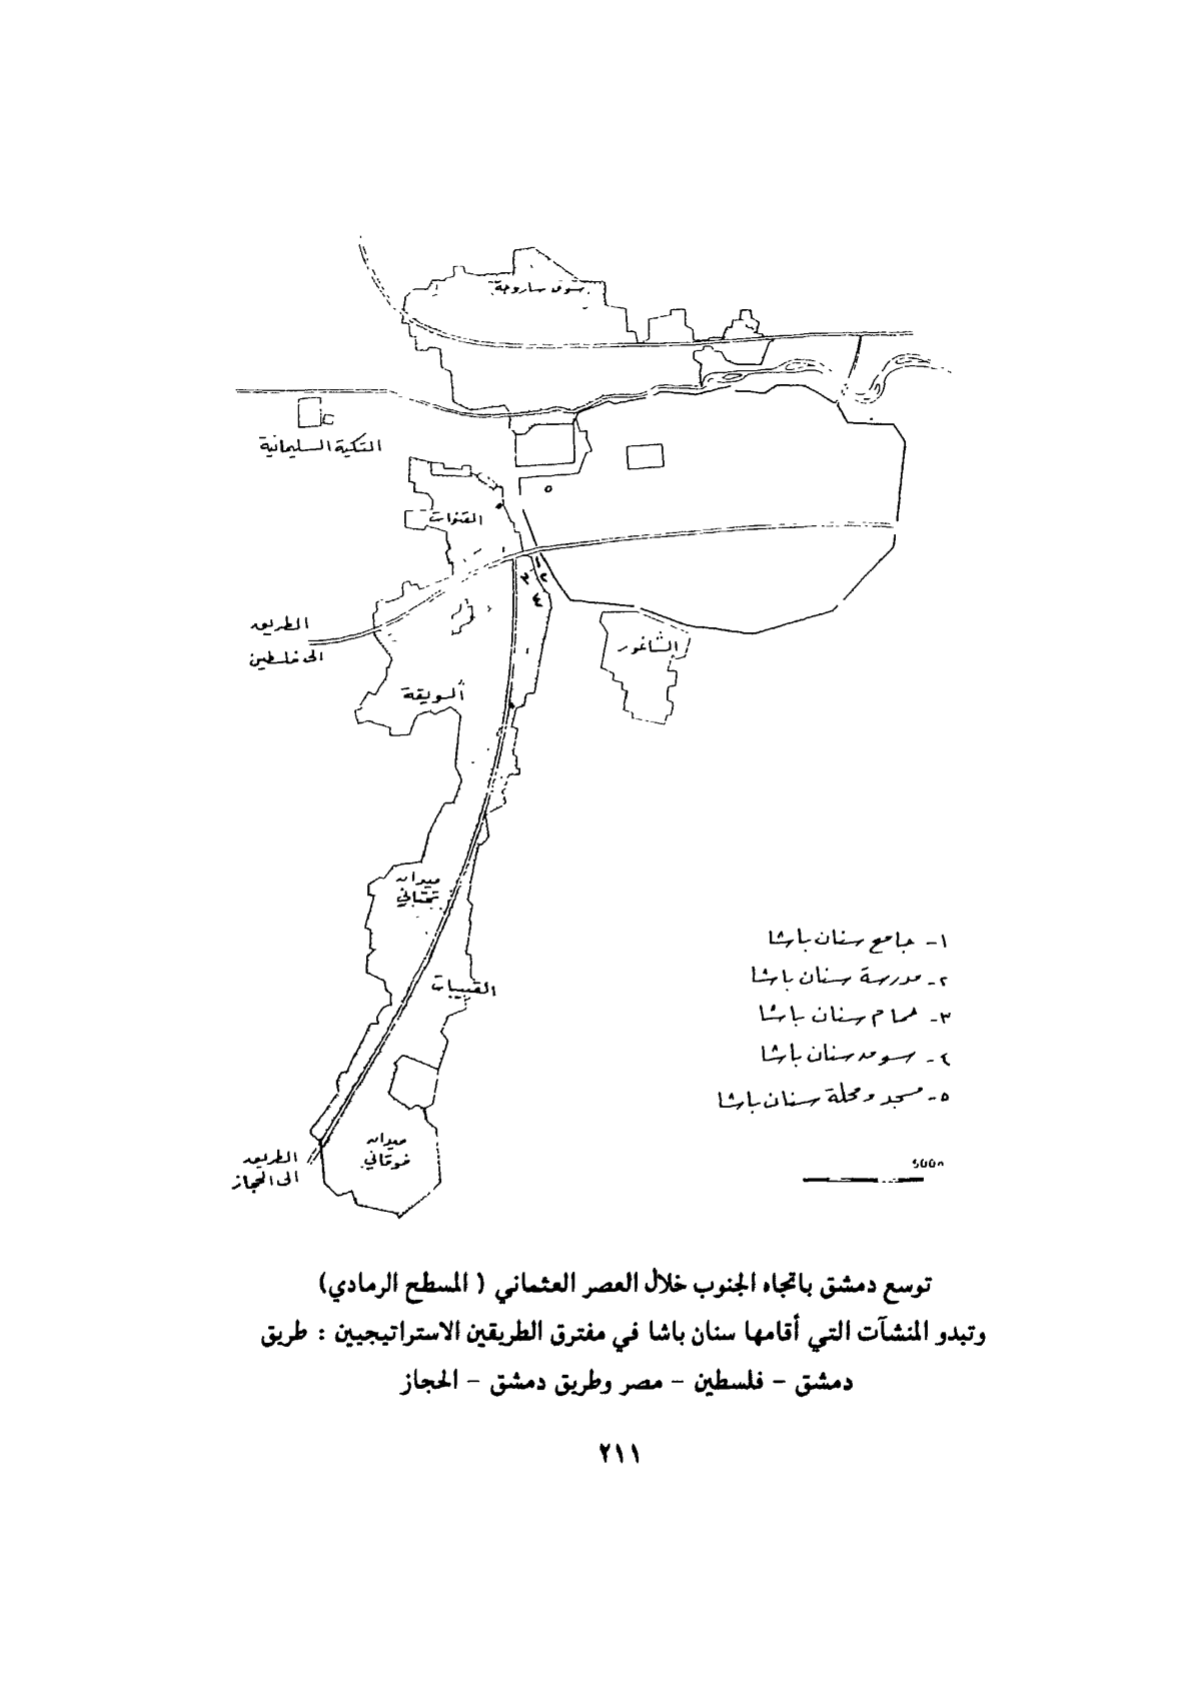 سوق ساروجة
التكية السليمانية
القنوات
٥
١
٢
٣
٤
الطريق
الى فلسطين
الشاغور
السويقة
ميدان
تحتاني
القبيبات
ميدان
فوقاني
الطريق
الى الحجاز
١- جامع سنان باشا
٢- مدرسة سنان باشا
٣- حمام سنان باشا
٤- سوق سنان باشا
٥- مسجد ومحلة سنان باشا
500m
توسع دمشق باتجاه الجنوب خلال العصر العثماني ( المسطح الرمادي)
وتبدو المنشآت التي أقامها سنان باشا في مفترق الطريقين الاستراتيجيين : طريق
دمشق - فلسطين - مصر وطريق دمشق - الحجاز
٢١١